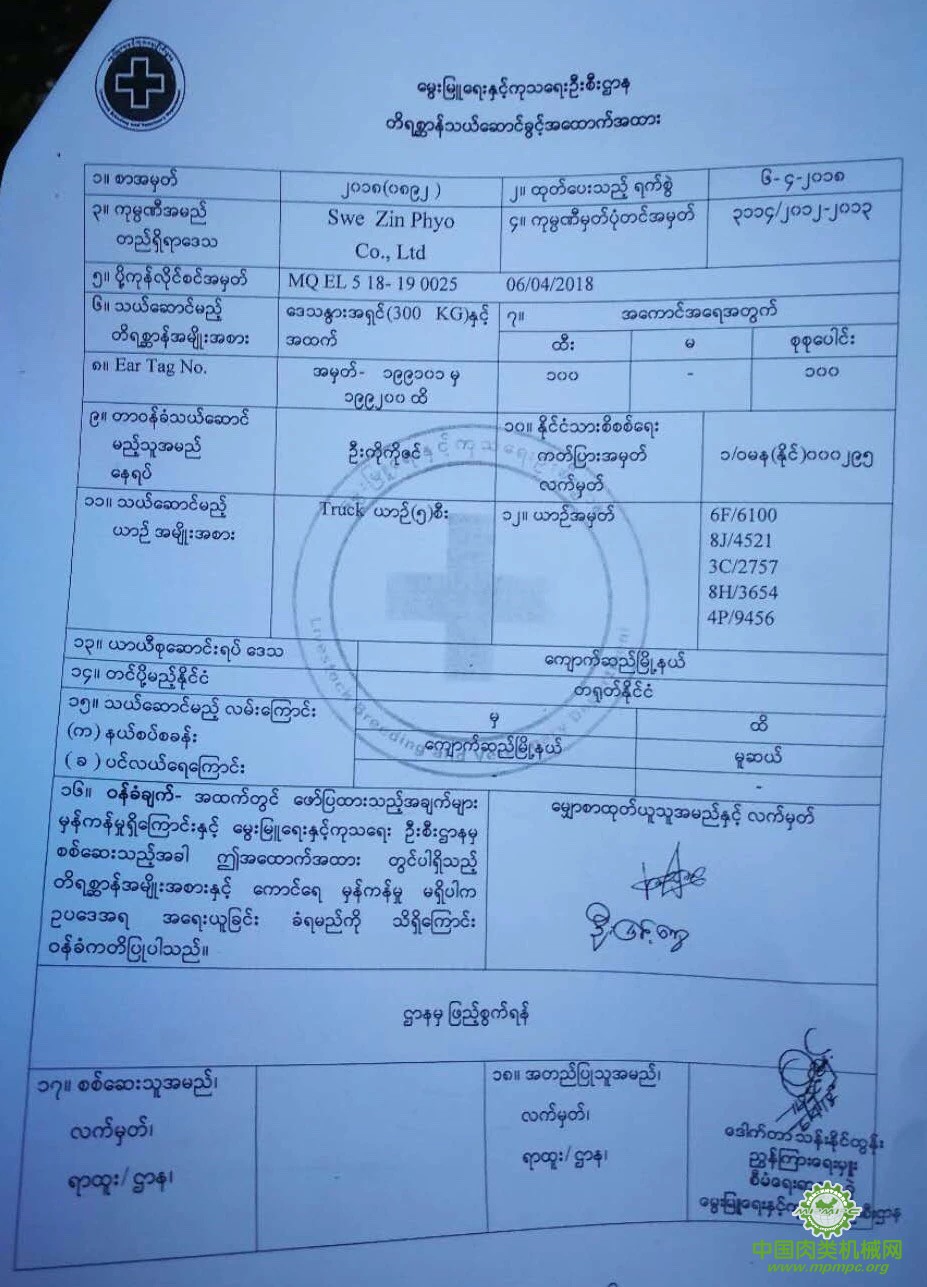 မွေးမြူရေးနှင့်ကုသရေးဦးစီးဌာန
တိရစ္ဆာန်သယ်ဆောင်ခွင့်အထောက်အထား
၁။ စာအမှတ်
၂၀၁၈(၀၈၉၂ )
၂။ ထုတ်ပေးသည့် ရက်စွဲ
၆-၄-၂၀၁၈
၃။ ကုမ္ပဏီအမည်
တည်ရှိရာဒေသ
Swe Zin Phyo
Co., Ltd
၄။ ကုမ္ပဏီမှတ်ပုံတင်အမှတ်
၃၁၁၄/၂၀၁၂-၂၀၁၃
၅။ ပို့ကုန်လိုင်စင်အမှတ်
MQ EL 5 18- 19 0025 06/04/2018
၆။ သယ်ဆောင်မည့်
တိရစ္ဆာန်အမျိုးအစား
ဒေသနွားအရှင်(300 KG)နှင့်
အထက်
၇။ အကောင်အရေအတွက်
ထီး
မ
စုစုပေါင်း
၈။ Ear Tag No.
အမှတ်- ၁၉၉၁၀၁ မှ
၁၉၉၂၀၀ ထိ
၁၀၀
-
၁၀၀
၉။ တာဝန်ခံသယ်ဆောင်
မည့်သူအမည်
နေရပ်
ဦးကိုကိုဇင်
၁၀။ နိုင်ငံသားစိစစ်ရေး
ကတ်ပြားအမှတ်
လက်မှတ်
၁/ဝမန(နိုင်)၀၀၀၂၉၅
၁၁။ သယ်ဆောင်မည့်
ယာဉ် အမျိုးအစား
Truck ယာဉ်(၅)စီး
၁၂။ ယာဉ်အမှတ်
6F/6100
8J/4521
3C/2757
8H/3654
4P/9456
၁၃။ ယာယီစုဆောင်းရပ် ဒေသ
ကျောက်ဆည်မြို့နယ်
၁၄။ တင်ပို့မည့်နိုင်ငံ
တရုတ်နိုင်ငံ
၁၅။ သယ်ဆောင်မည့် လမ်းကြောင်း
မှ
ထိ
(က) နယ်စပ်စခန်း
ကျောက်ဆည်မြို့နယ်
မူဆယ်
( ခ ) ပင်လယ်ရေကြောင်း
-
-
၁၆။ ဝန်ခံချက်- အထက်တွင် ဖော်ပြထားသည့်အချက်များ
မှန်ကန်မှုရှိကြောင်းနှင့် မွေးမြူရေးနှင့်ကုသရေး ဦးစီးဌာနမှ
စစ်ဆေးသည့်အခါ ဤအထောက်အထား တွင်ပါရှိသည့်
တိရစ္ဆာန်အမျိုးအစားနှင့် ကောင်ရေ မှန်ကန်မှု မရှိပါက
ဥပဒေအရ အရေးယူခြင်း ခံရမည်ကို သိရှိကြောင်း
ဝန်ခံကတိပြုပါသည်။
မျှောစာထုတ်ယူသူအမည်နှင့် လက်မှတ်
ဌာနမှ ဖြည့်စွက်ရန်
၁၇။ စစ်ဆေးသူအမည်၊
လက်မှတ်၊
ရာထူး/ဌာန၊
၁၈။ အတည်ပြုသူအမည်၊
လက်မှတ်၊
ရာထူး/ဌာန၊
ဒေါက်တာသန်းနိုင်ထွန်း
ညွှန်ကြားရေးမှူး
中国肉类机械网
www.mpmpc.org